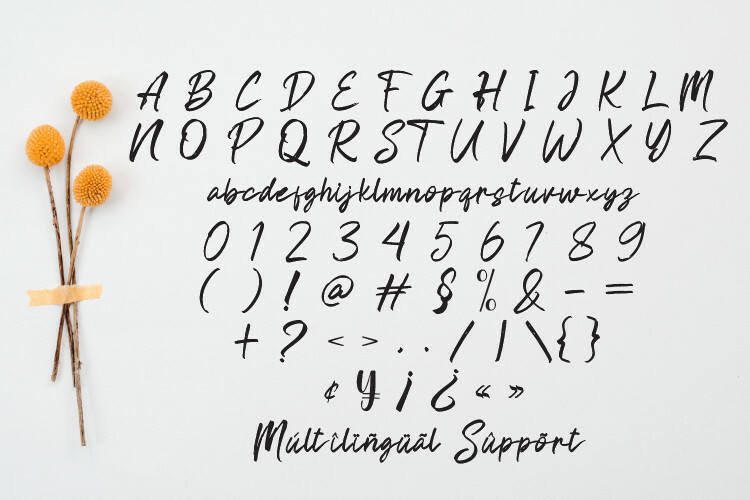 A B C D E F G H I J K L M
N O P Q R S T U V W X Y Z
abcdefghijklmnopqrstuvwxyz
0 1 2 3 4 5 6 7 8 9
( ) ! @ # § % & - =
+ ? < > . . / | \ { }
¢ ¥ ¡ ¿ « »
Múltîlïñgüãl Sûppõrt